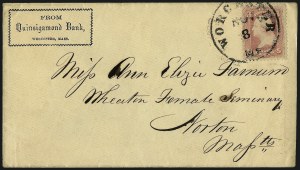 FROM
Quinsigamond Bank,
WORCESTER, MASS.
WORCESTER
NOV
8
MS.
Miss Ann Eliza Farnum
Wheaton Female Seminary
Norton
Masstts